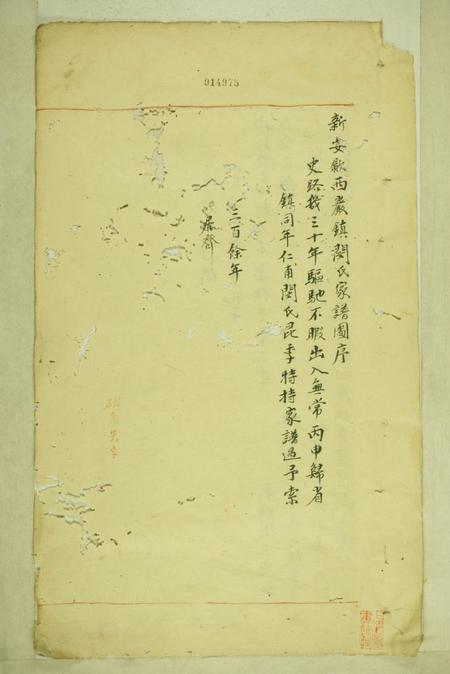 914975
新安歙西巖鎮閔氏家譜圖序
史路幾三十年驅馳不暇出入無常丙申歸省
鎮同年仁甫閔氏昆季特持家譜過予索
三百餘年
齋